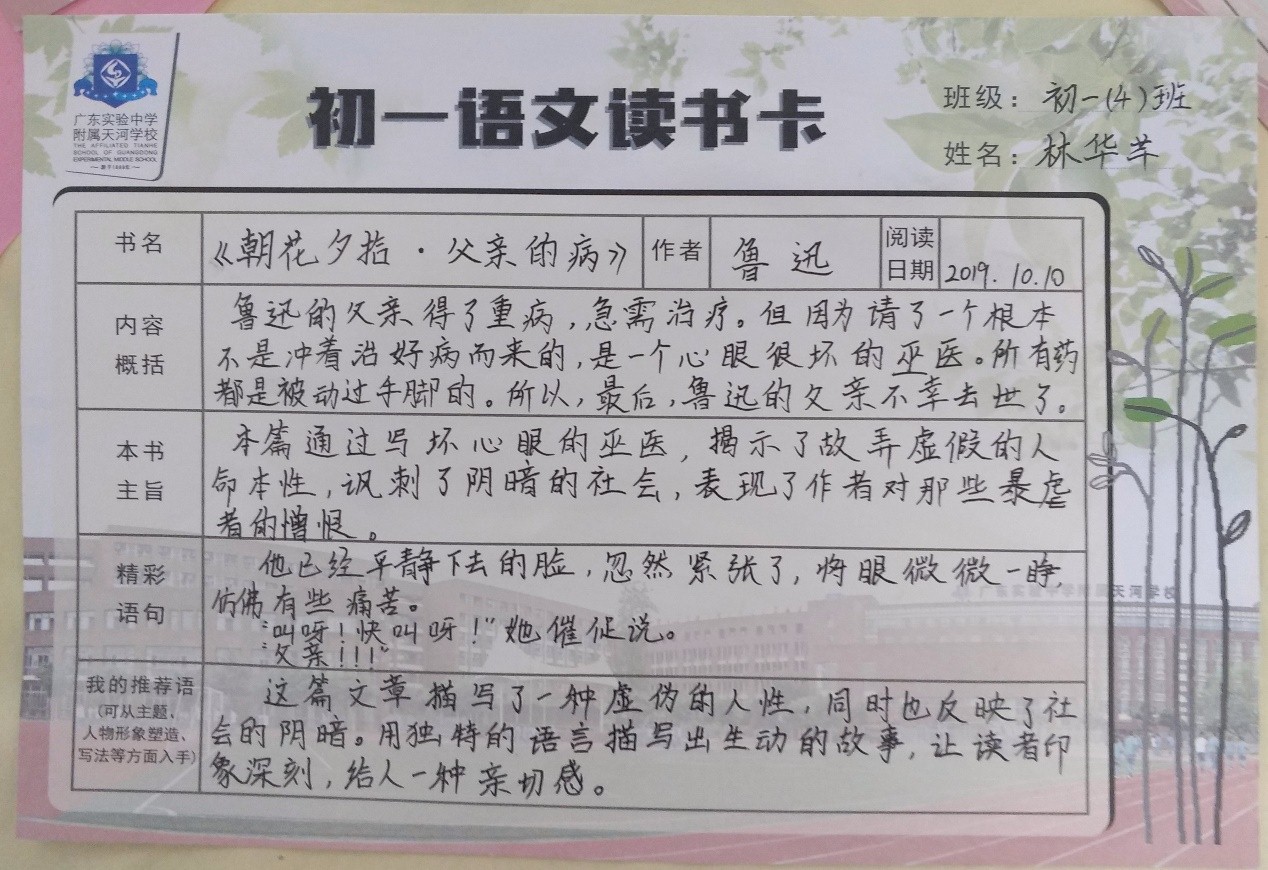 广东实验中学
附属天河学校
THE AFFILIATED TIANHE
SCHOOL OF GUANGDONG
EXPERIMENTAL MIDDLE SCHOOL
初一语文读书卡
班级：初一(4)班
姓名：林华芊
书名
《朝花夕拾·父亲的病》
作者
鲁迅
阅读
日期
2019.10.10
内容
概括
鲁迅的父亲得了重病，急需治疗。但因为请了一个根本
不是冲着治好病而来的，是一个心眼很坏的巫医。所有药
都是被动过手脚的。所以，最后，鲁迅的父亲不幸去世了。
本书
主旨
本篇通过写坏心眼的巫医，揭示了故弄虚假的人
命本性，讽刺了阴暗的社会，表现了作者对那些暴虐
者的憎恨。
精彩
语句
他已经平静下去的脸，忽然紧张了，将眼微微一睁，
仿佛有些痛苦。
“叫呀！快叫呀！”她催促说。
“父亲！！！”
我的推荐语
(可从主题、
人物形象塑造、
写法等方面入手)
这篇文章描写了一种虚伪的人性，同时也反映了社
会的阴暗。用独特的语言描写出生动的故事，让读者印
象深刻，给人一种亲切感。
广东实验中学附属天河学校